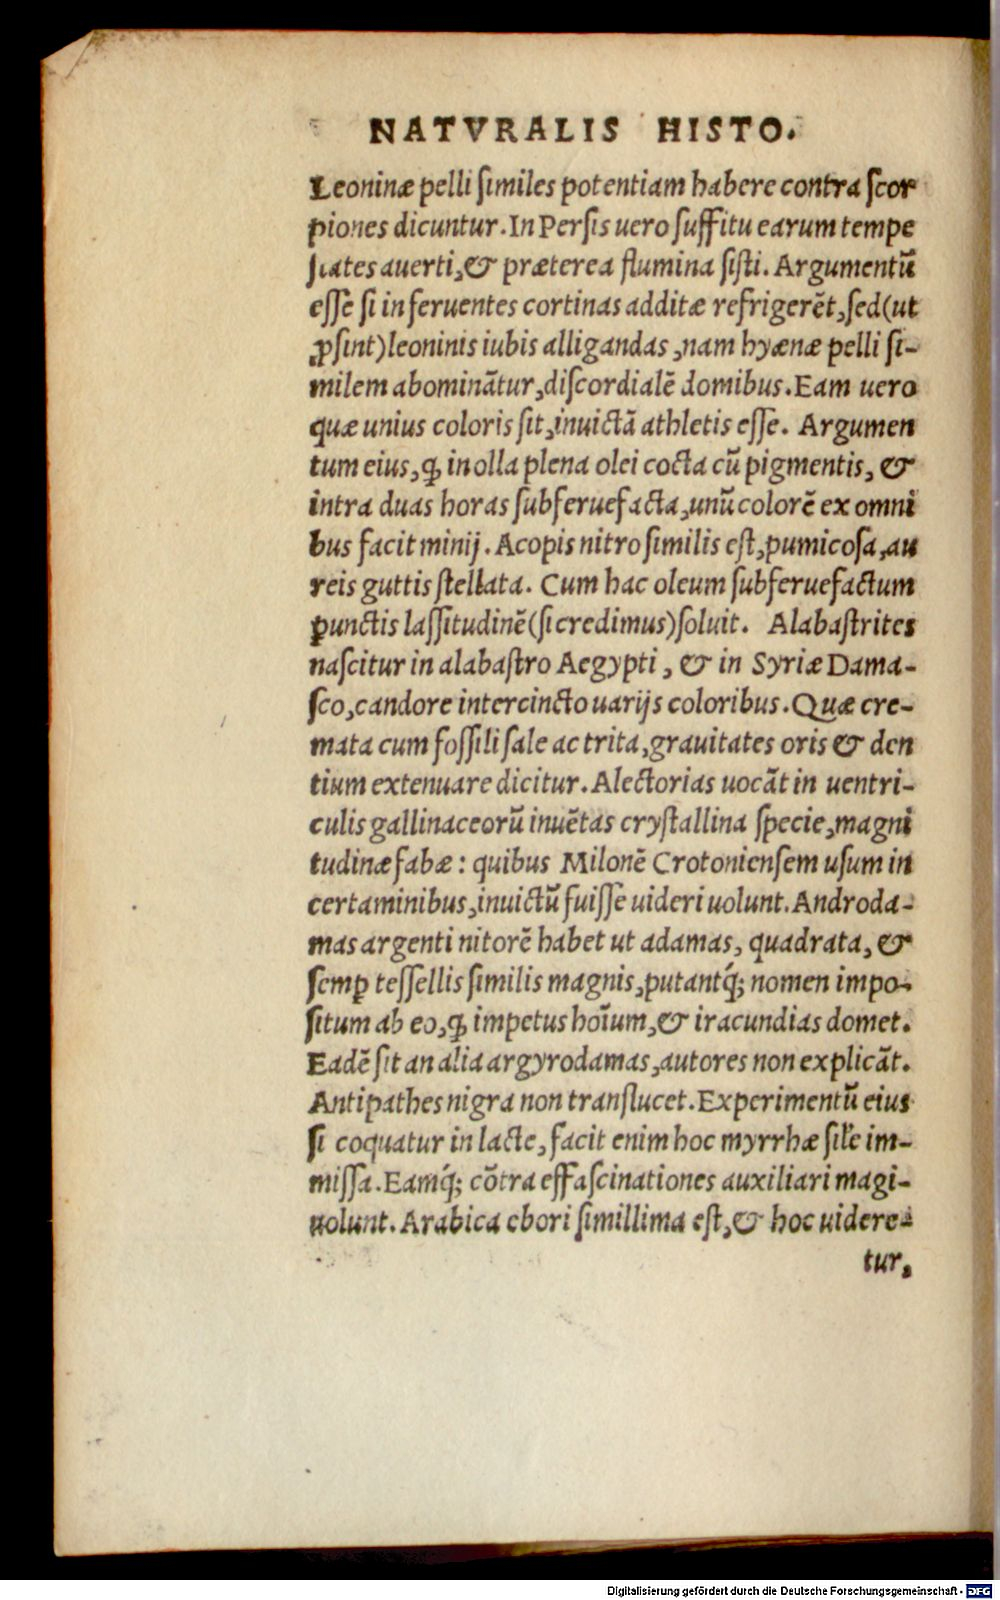 NATVRALIS HISTO.
Leoninæ pelli ſimiles potentiam habere contra ſcor
piones dicuntur. In Perſis uero ſuffitu earum tempe
ſtates auerti, & præterea flumina ſiſti. Argumentū
eſſe ſi in feruentes cortinas additæ refrigerēt, ſed (ut
ꝓſint) leoninis iubis alligandas, nam hyænæ pelli ſi-
milem abominātur, diſcordialē domibus. Eam uero
quæ unius coloris ſit, inuictā athletis eſſe. Argumen
tum eius, ꝙ in olla plena olei cocta cū pigmentis, &
intra duas horas ſubferuefacta, unū colorē ex omni
bus facit minij. Acopis nitro ſimilis eſt, pumicoſa, au
reis guttis ſtellata. Cum hac oleum ſubferuefactum
ꝑunctis laſſitudinē (ſi credimus) ſoluit. Alabaſtrites
naſcitur in alabaſtro Aegypti, & in Syriæ Dama-
ſco, candore intercincto uarijs coloribus. Quæ cre-
mata cum foſſili ſale ac trita, grauitates oris & den
tium extenuare dicitur. Alectorias uocāt in uentri-
culis gallinaceorū inuētas cryſtallina ſpecie, magni
tudinæ fabæ: quibus Milonē Crotonienſem uſum in
certaminibus, inuictū fuiſſe uideri uolunt. Androda-
mas argenti nitorē habet ut adamas, quadrata, &
ſemꝑ teſſellis ſimilis magnis, putantq́; nomen impo-
ſitum ab eo, ꝙ impetus hoīum, & iracundias domet.
Eadē ſit an alia argyrodamas, autores non explicāt.
Antipathes nigra non tranſlucet. Experimentū eius
ſi coquatur in lacte, facit enim hoc myrrhæ ſiľe im-
miſſa. Eamq́; cōtra effaſcinationes auxiliari magi-
uolunt. Arabica ebori ſimillima eſt, & hoc uidere-
tur,
Digitalisierung gefördert durch die Deutsche Forschungsgemeinschaft - DFG